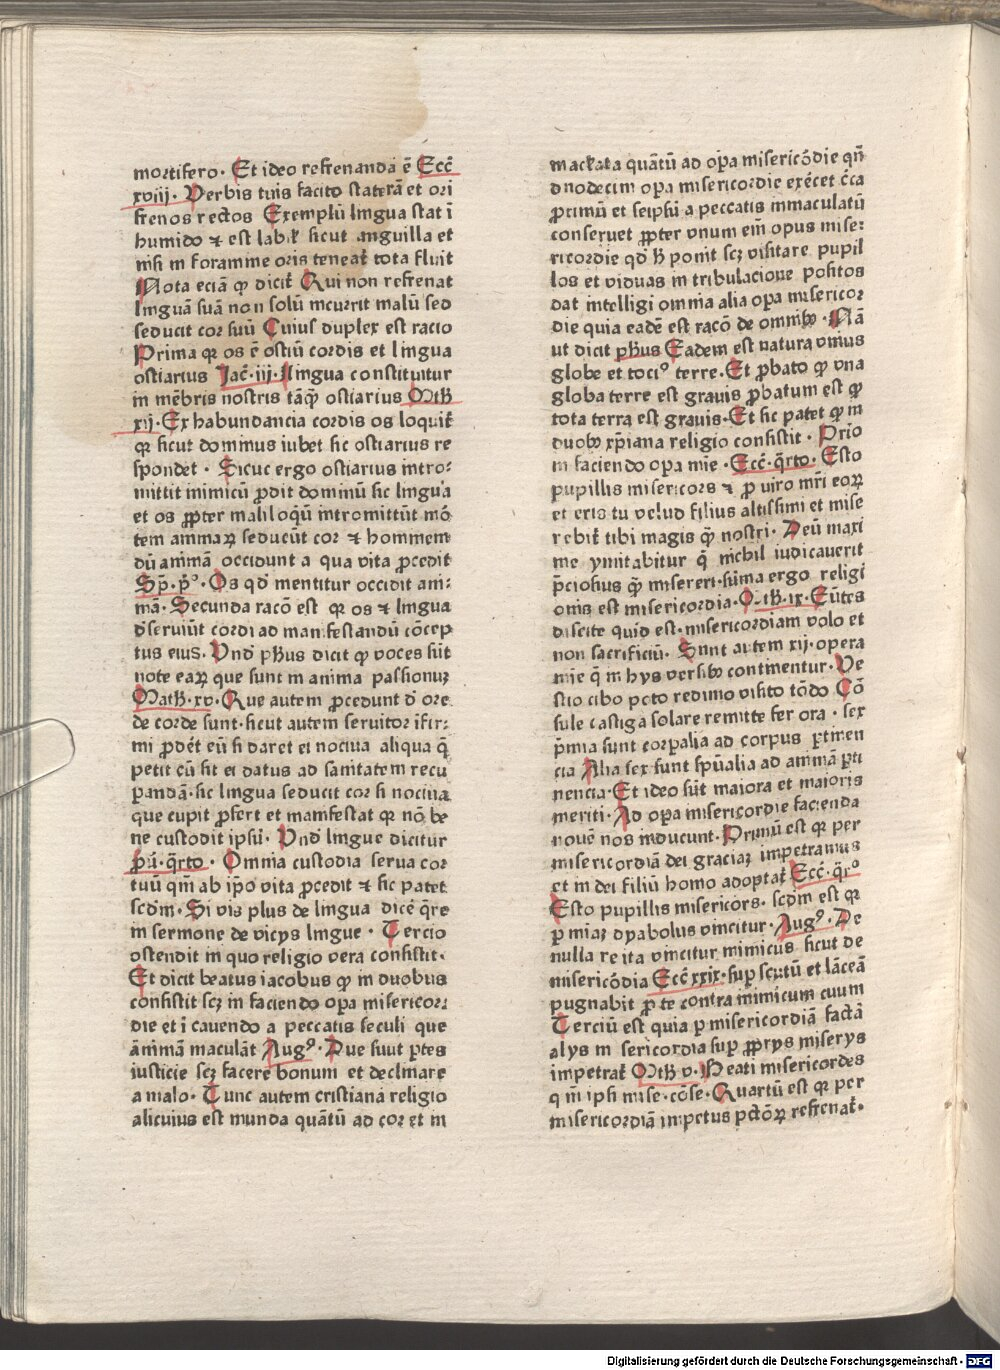 mortifero. Et ideo refrenanda ē Ecc̄
xviij. Verbis tuis facito staterā et ori
frenos rectos Exemplū lingua stat ī
humido ⁊ est labiꝉ sicut anguilla et
nisi in foramine oris teneaꝉ tota fluit
Nota eciā ꝙ diciꝉ Qui non refrenat
linguā suā non solū incurrit malū sed
seducit cor suū Cuius duplex est racio
Prima qꝛ os ē ostiū cordis et lingua
ostiarius Jac̄. iij. Lingua constituitur
in mēbris nostris tāꝙ̄ ostiarius Mtħ
xij. Ex habundancia cordis os loquiꝉ
qꝛ sicut dominus iubet sic ostiarius re
spondet. Sicuc ergo ostiarius intro⸗
mittit inimicū ꝓdit dominū sic lingua
et os ꝓpter maliloqū intromittūt mō
tem animaꝝ seducūt cor ⁊ hominem
dū animā occidunt a qua vita ꝓcedit
Sp̄. pͦ. Os qđ mentitur occidit ani⸗
mā. Secunda racō est qꝛ os ⁊ lingua
đseruiūt cordi ad manifestandū cōcep
tus eius. Vnđ pħus dicit ꝙ voces sūt
note eaꝝ que sunt in anima passionuꝫ
Matħ. xv. Que autem ꝓcedunt đ ore
de corde sunt. sicut autem seruitor īfir⸗
mi ꝓdēt eū si daret ei nociua aliqua q̄
petit cū sit ei datus ad sanitatem recu
ꝑandā. sic lingua seducit cor si nociua
que cupit ꝓfert et manifestat qꝛ nō be
ne custodit ipsū. Vnđ lingue dicitur
ꝓū. q̄rto. Omnia custodia serua cor
tuū qm̄ ab ip̄o vita ꝓcedit ⁊ sic patet
scđm. Si vis plus de lingua dicē q̄re
in sermone de vicijs lingue. Tercio
ostendit in quo religio vera consistit.
Et dicit beatus iacobus ꝙ in duobus
consistit scꝫ in faciendo oꝑa misericor⸗
die et ī cauendo a peccatis seculi que
āimām maculāt Augꝰ. Due suut ꝑtes
iusticie scꝫ facere bonum et declinare
a malo. Tunc autem cristiana religio
alicuius est munda quātū ad cor et in
mac̄ꝉata quātū ad oꝑa misericōdie qn̄
duodecim oꝑa misericordie exēcet c̄ca
ꝓximū et seipsū a peccatis immaculatū
conseruet ꝓpter vnum eīm opus mise⸗
ricordie qđ ħ ponit scꝫ visitare pupil
los et viduas in tribulacione positos
dat intelligi omnia alia oꝑa misericor
die quia eadē est racō de omnibꝫ. Nā
ut dicit pħus Eadem est natura vnius
globe et tociꝰ terre. Et ꝓbato ꝙ vna
globa terre est grauis ꝓbatum est ꝙ
tota terra est grauis. Et sic patet ꝙ in
duobꝫ xp̄iana religio consistit. Prīo
in faciendo oꝑa mīe. Ecc̄. q̄rto. Esto
pupillis misericors ⁊ ꝓ viro mr̄i eoꝝ
et eris tu velud filius altissimi et mise
rebiꝉ tibi magis ꝙ̄ nostri. Deū maxi
me ymitabitur q̄ nichil iudicauerit
p̄ciosius ꝙ̄ misereri. sūma ergo religi
onis est misericordia. Mtħ. ix. Eūtes
discite quid est. misericordiam volo et
non sacrificiū. Sunt autem xij. opera
mīe q̄ in hijs versibꝫ continentur. Ve
stio cibo poto redimo visito cōdo Cō
sule castiga solare remitte fer ora. sex
p̄mia sunt corꝑalia ad corpus ꝑtinen
cia Alia sex sunt sp̄ualia ad animā ꝑti
nencia. Et ideo sūt maiora et maioris
meriti. Ad oꝑa misericordie facienda
nouē nos inducunt. Primū est qꝛ per
misericordiā dei graciaꝫ impetramus
et in dei filiū homo adoptaꝉ Ecc̄. q̄rͦ
Esto pupillis misericors. scđm est qꝛ
ꝑ miaꝫ dyabolus vincitur. Augꝰ. De
nulla re ita vincitur inimicus sicut de
misericōdia Ecc̄ xxix. suꝑ scutū et lāceā
pugnabit ꝓ te contra inimicum tuum
Terciū est quia ꝑ misericordiā factā
alijs mi sericordia suꝑ ꝓprijs miserijs
impetraꝉ Mtħ. v. Beati misericordes
q m̄ ipsi mise. cōse. Quartū est qꝛ per
misericordiā impetus pctōꝝ refrenaꝉ.
Digitalisierung gefördert durch die Deutsche Forschungsgemeinschaft - DFG